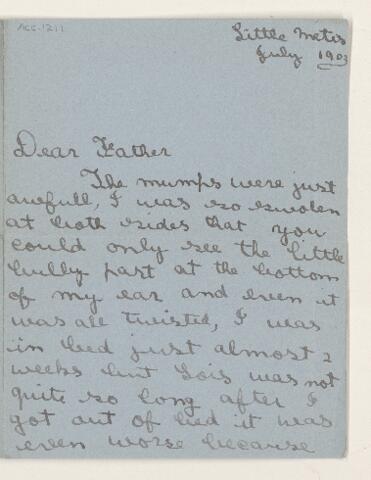 ACC-1211
Little Metis
July 1903
Dear Father
The mumps were just
awfull, I was so swolen
at both sides that you
could only see the little
bully part at the bottom
of my ear and even it
was all twisted, I was
in bed just almost 2
weeks but Lois was not
quite so long after I
got out of bed it was
even worse because